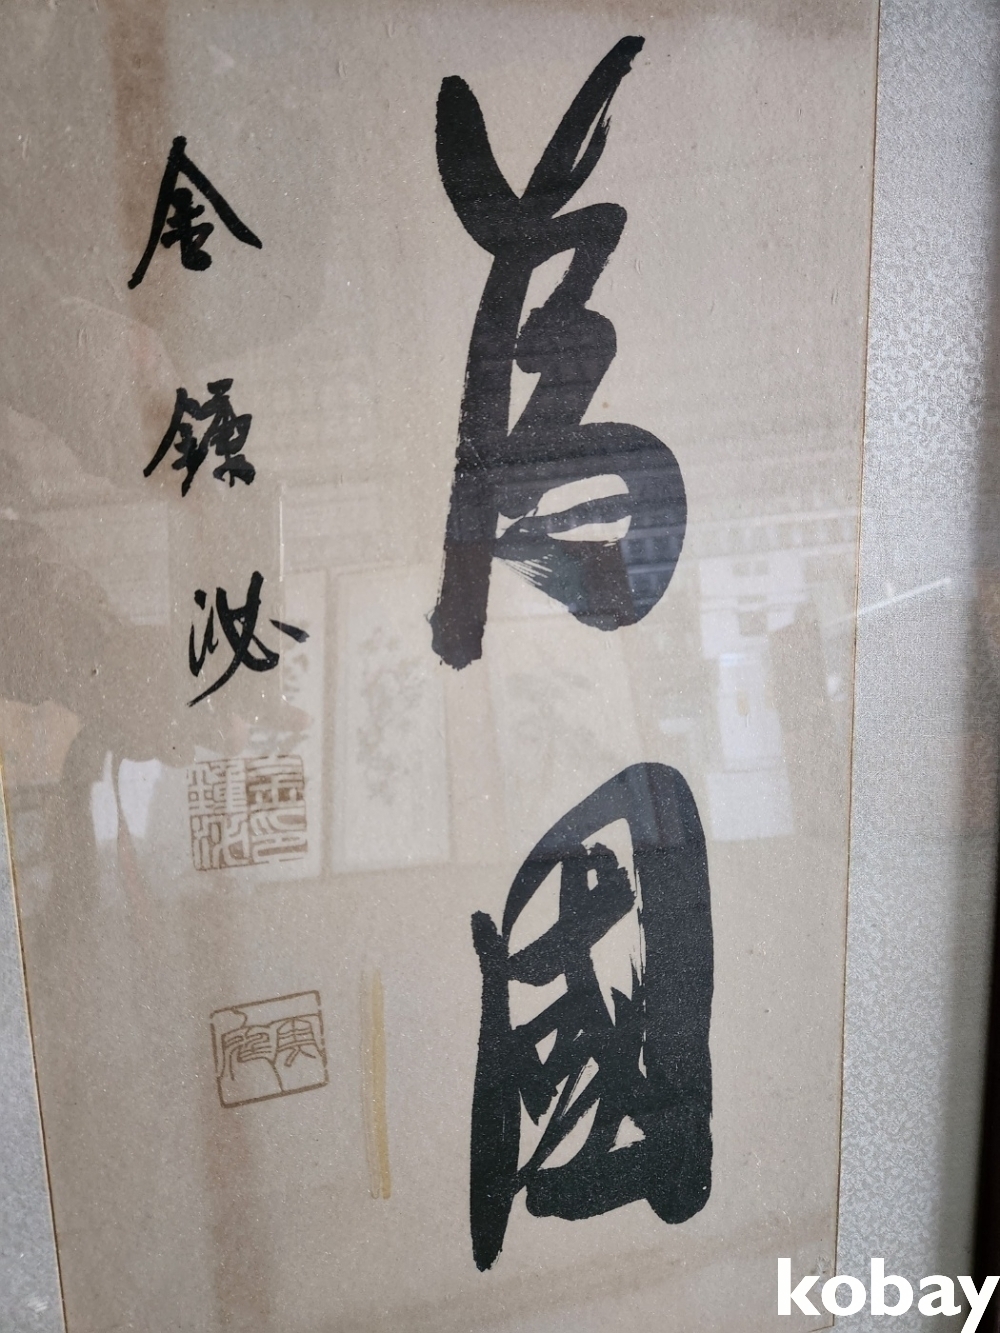 為國
金鍾泌
金印鍾泌
kobay